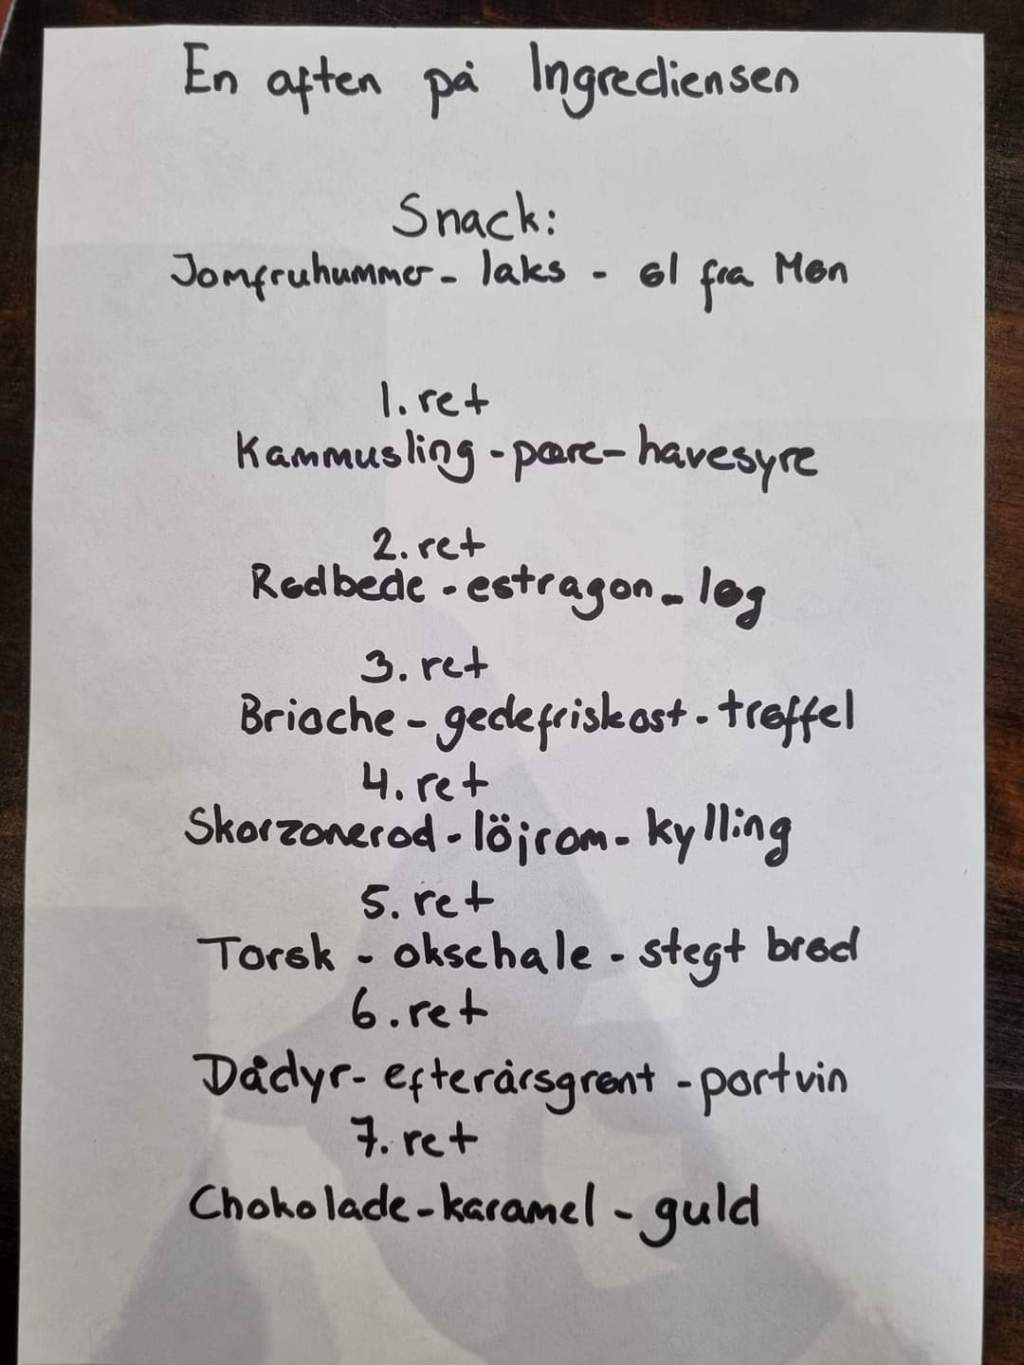 En aften på Ingrediensen
Snack:
Jomfruhummer - laks - øl fra Møn
1. ret
Kammusling - pære - havesyre
2. ret
Rødbede - estragon - løg
3. ret
Brioche - gedefriskost - trøffel
4. ret
Skorzonerod - löjrom - kylling
5. ret
Torsk - oksehale - stegt brød
6. ret
Dådyr - efterårsgrønt - portvin
7. ret
Chokolade - karamel - guld